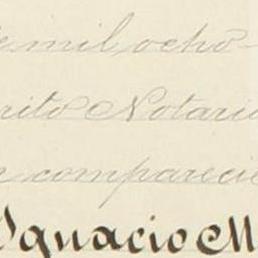 e mil ocho-
rito Notario
n comparecie
Ignacio M